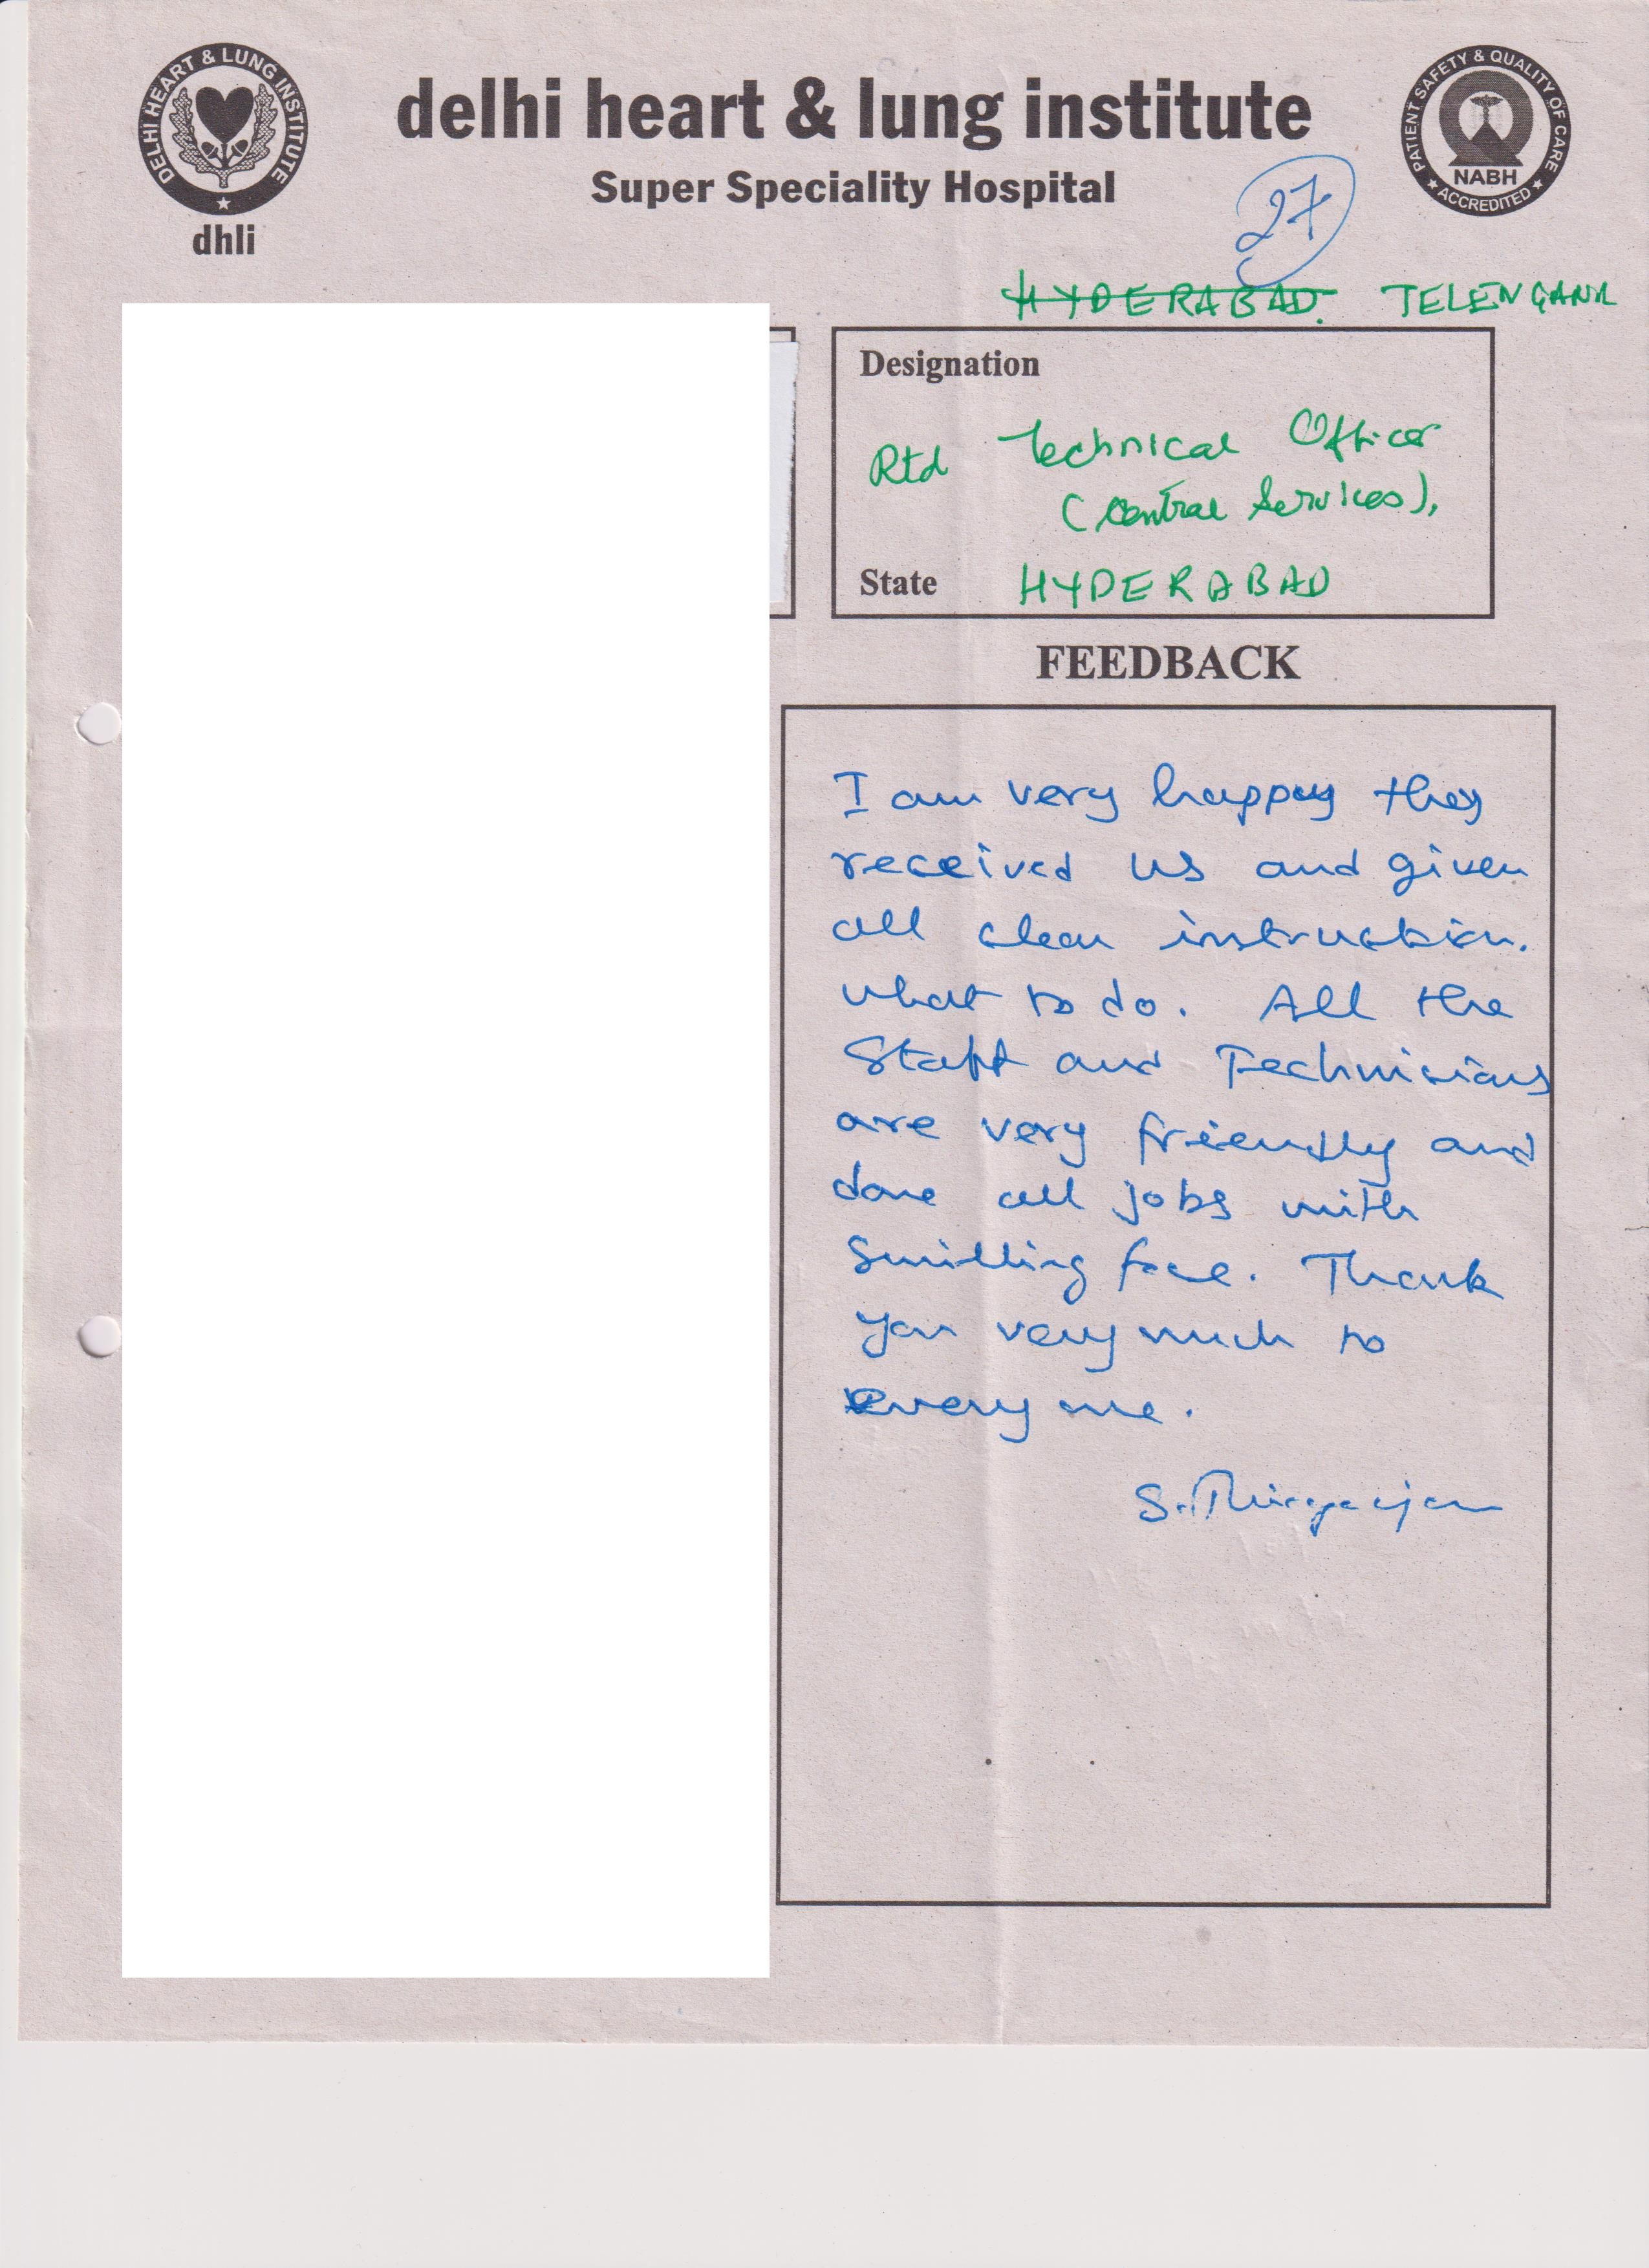 DELHI HEART & LUNG INSTITUTE
dhli
delhi heart & lung institute
Super Speciality Hospital
PATIENT SAFETY & QUALITY OF CARE
NABH
ACCREDITED
27
HYDERABAD. TELENGANA
Designation
Rtd Technical Officer
(Central Services),
State HYDERABAD
FEEDBACK
I am very happy they
received us and given
all clear instruction.
what to do. All the
Staff and Technicians
are very friendly and
done all jobs with
Smilling face. Thank
you very much to
every one.
S.